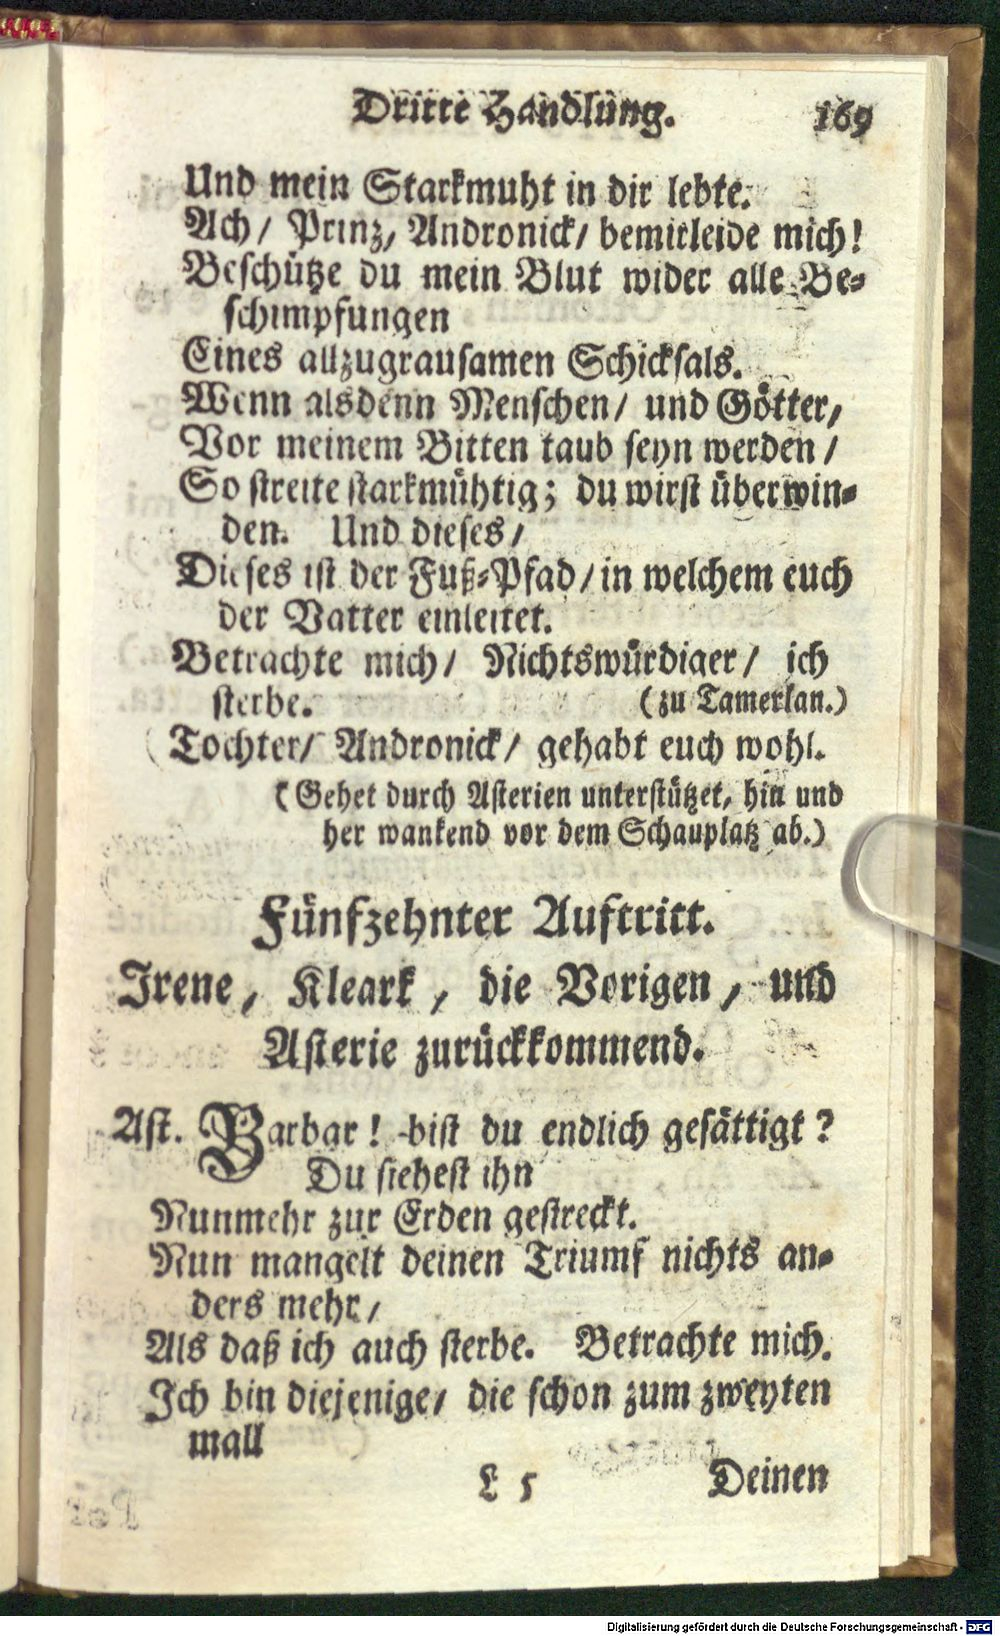 Dritte Handlung. 169
Und mein Starkmuht in dir lebte.
Ach/ Prinz, Andronick/ bemitleide mich!
Beschütze du mein Blut wider alle Be-
schimpfungen
Eines allzugrausamen Schicksals.
Wenn alsdenn Menschen/ und Götter,
Vor meinem Bitten taub seyn werden /
So streite starkmühtig; du wirst überwin-
den. Und dieses /
Dieses ist der Fuß-Pfad / in welchem euch
der Vatter einleitet.
Betrachte mich/ Nichtswürdiger/ ich
sterbe. (zu Tamerlan.)
Tochter/ Andronick/ gehabt euch wohl.
(Gehet durch Asterien unterstützet, hin und
her wankend vor dem Schauplatz ab.)
Fünfzehnter Auftritt.
Irene, Kleark, die Vorigen, und
Asterie zurückkommend.
Ast. Barbar! bist du endlich gesättigt?
Du siehest ihn
Nunmehr zur Erden gestreckt.
Nun mangelt deinen Triumf nichts an-
ders mehr /
Als daß ich auch sterbe. Betrachte mich.
Ich bin diejenige/ die schon zum zweyten
mall
L 5 Deinen
Digitalisierung gefördert durch die Deutsche Forschungsgemeinschaft - DFG